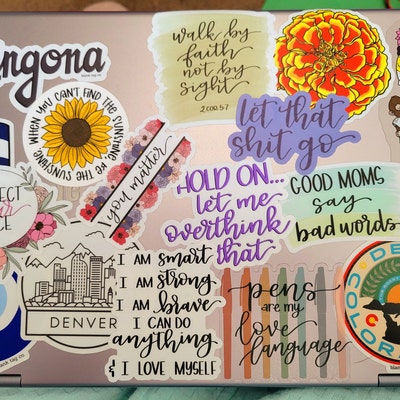 ngona
black tag co.
walk by
faith
not by
sight
2 COR. 5:7
let that
shit go
WHEN YOU CAN'T FIND THE SUNSHINE, BE THE SUNSHINE
you matter
HOLD ON...
let me
overthink
that
GOOD MOMS
say
bad words
DENVER
I AM smart
I AM strong
I AM brave
I CAN DO
anything
& I LOVE MYSELF
pens
are my
love
language
DE
COLORA